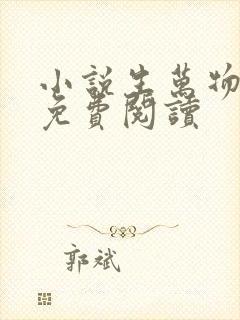 小說生萬物
免費閱讀
郭斌